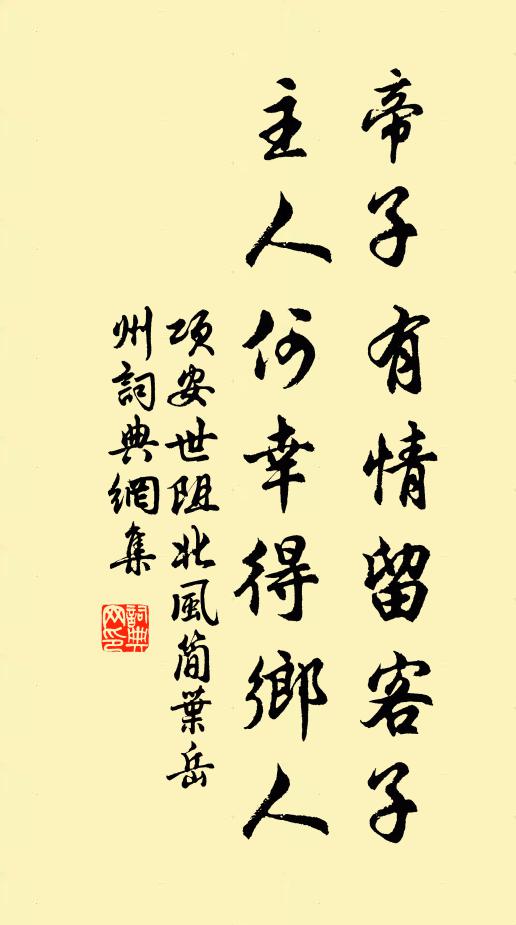 帝子有情留客子
主人何幸得鄉人
項安世阻北風簡葉岳
州詞典網集
詞典
网印